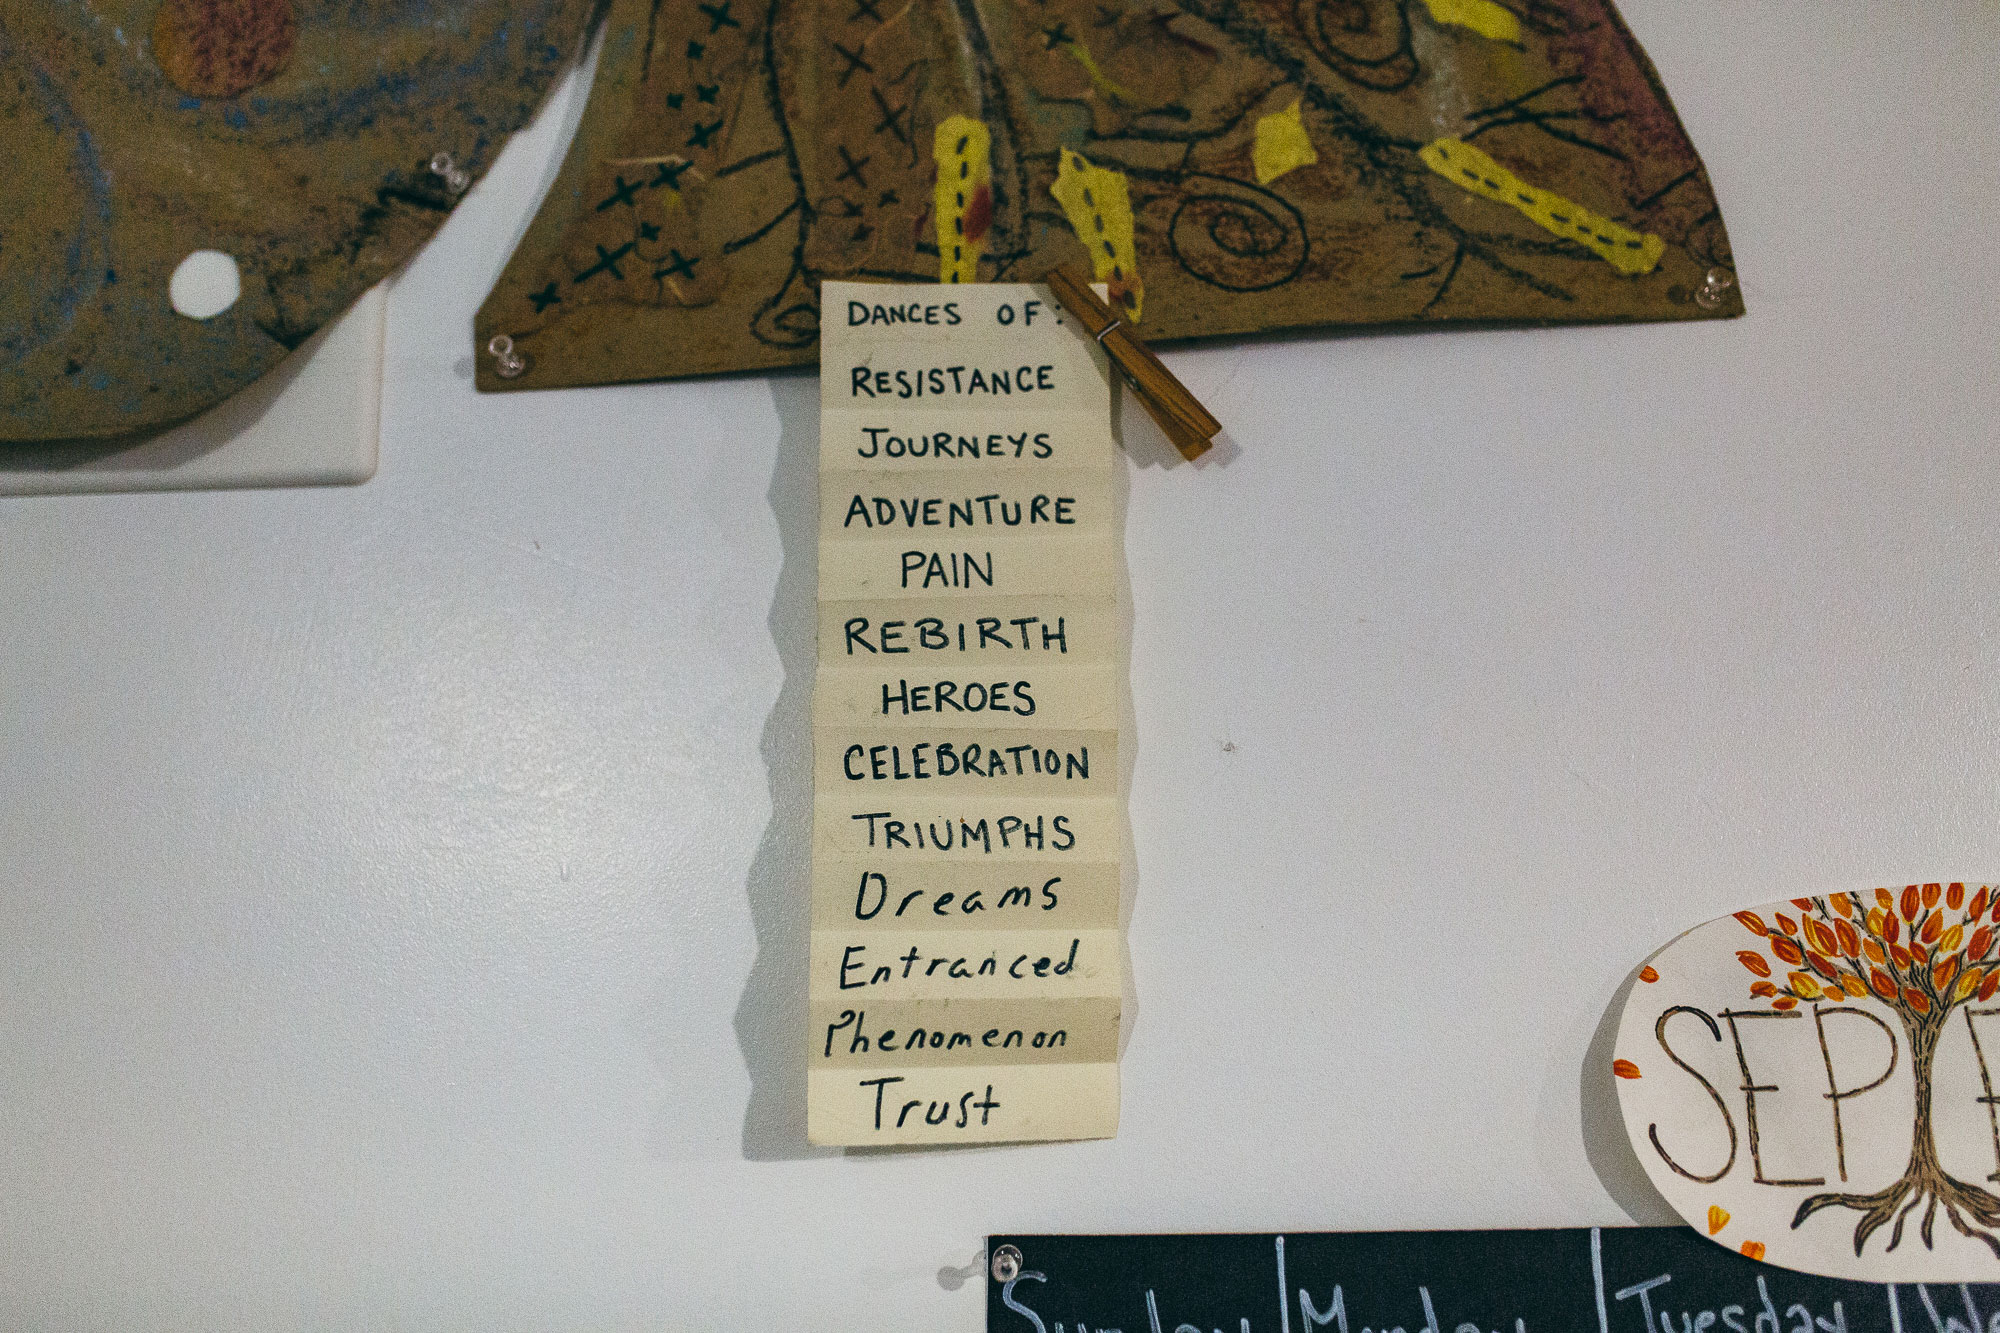 DANCES OF:
RESISTANCE
JOURNEYS
ADVENTURE
PAIN
REBIRTH
HEROES
CELEBRATION
TRIUMPHS
Dreams
Entranced
Phenomenon
Trust
SEP
Sunday Monday Tuesday